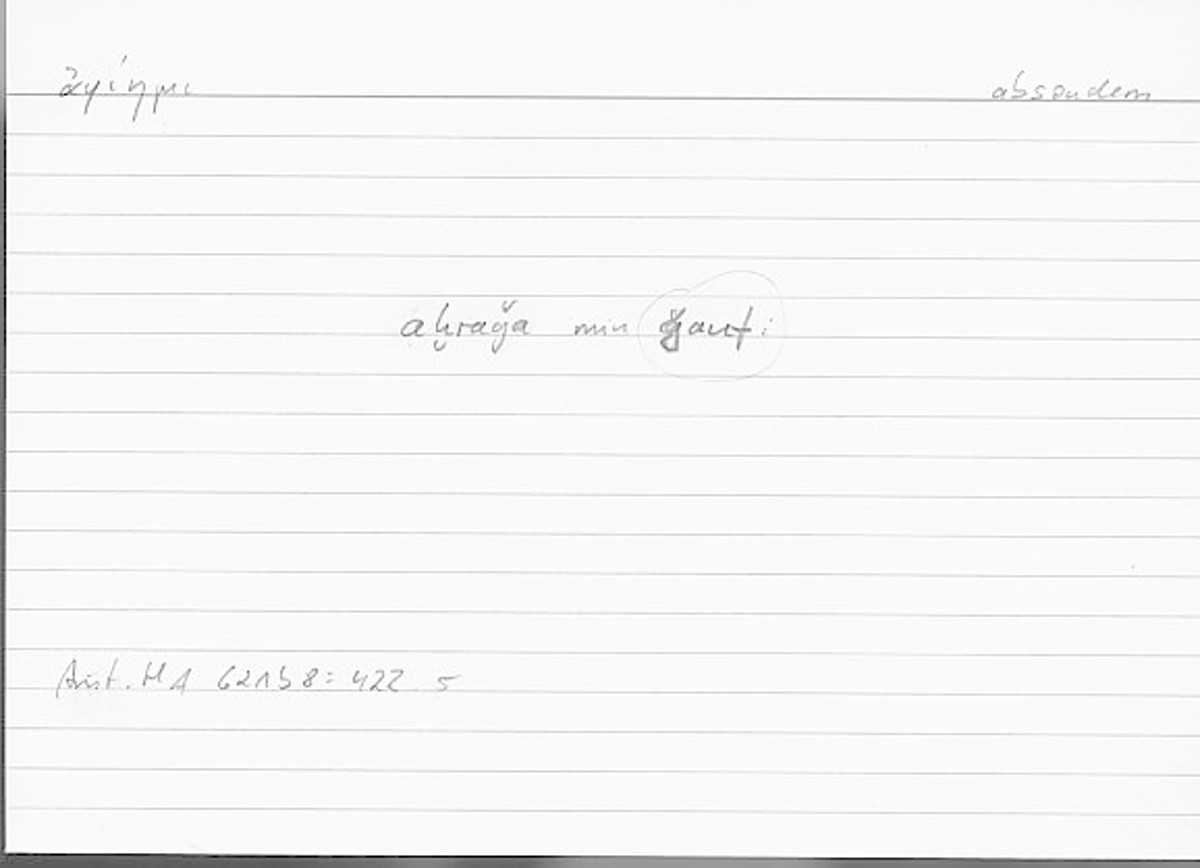 ἀφίημι absondern
aḫraǧa min ǧauf:
Arist. HA 621b8: 422.5